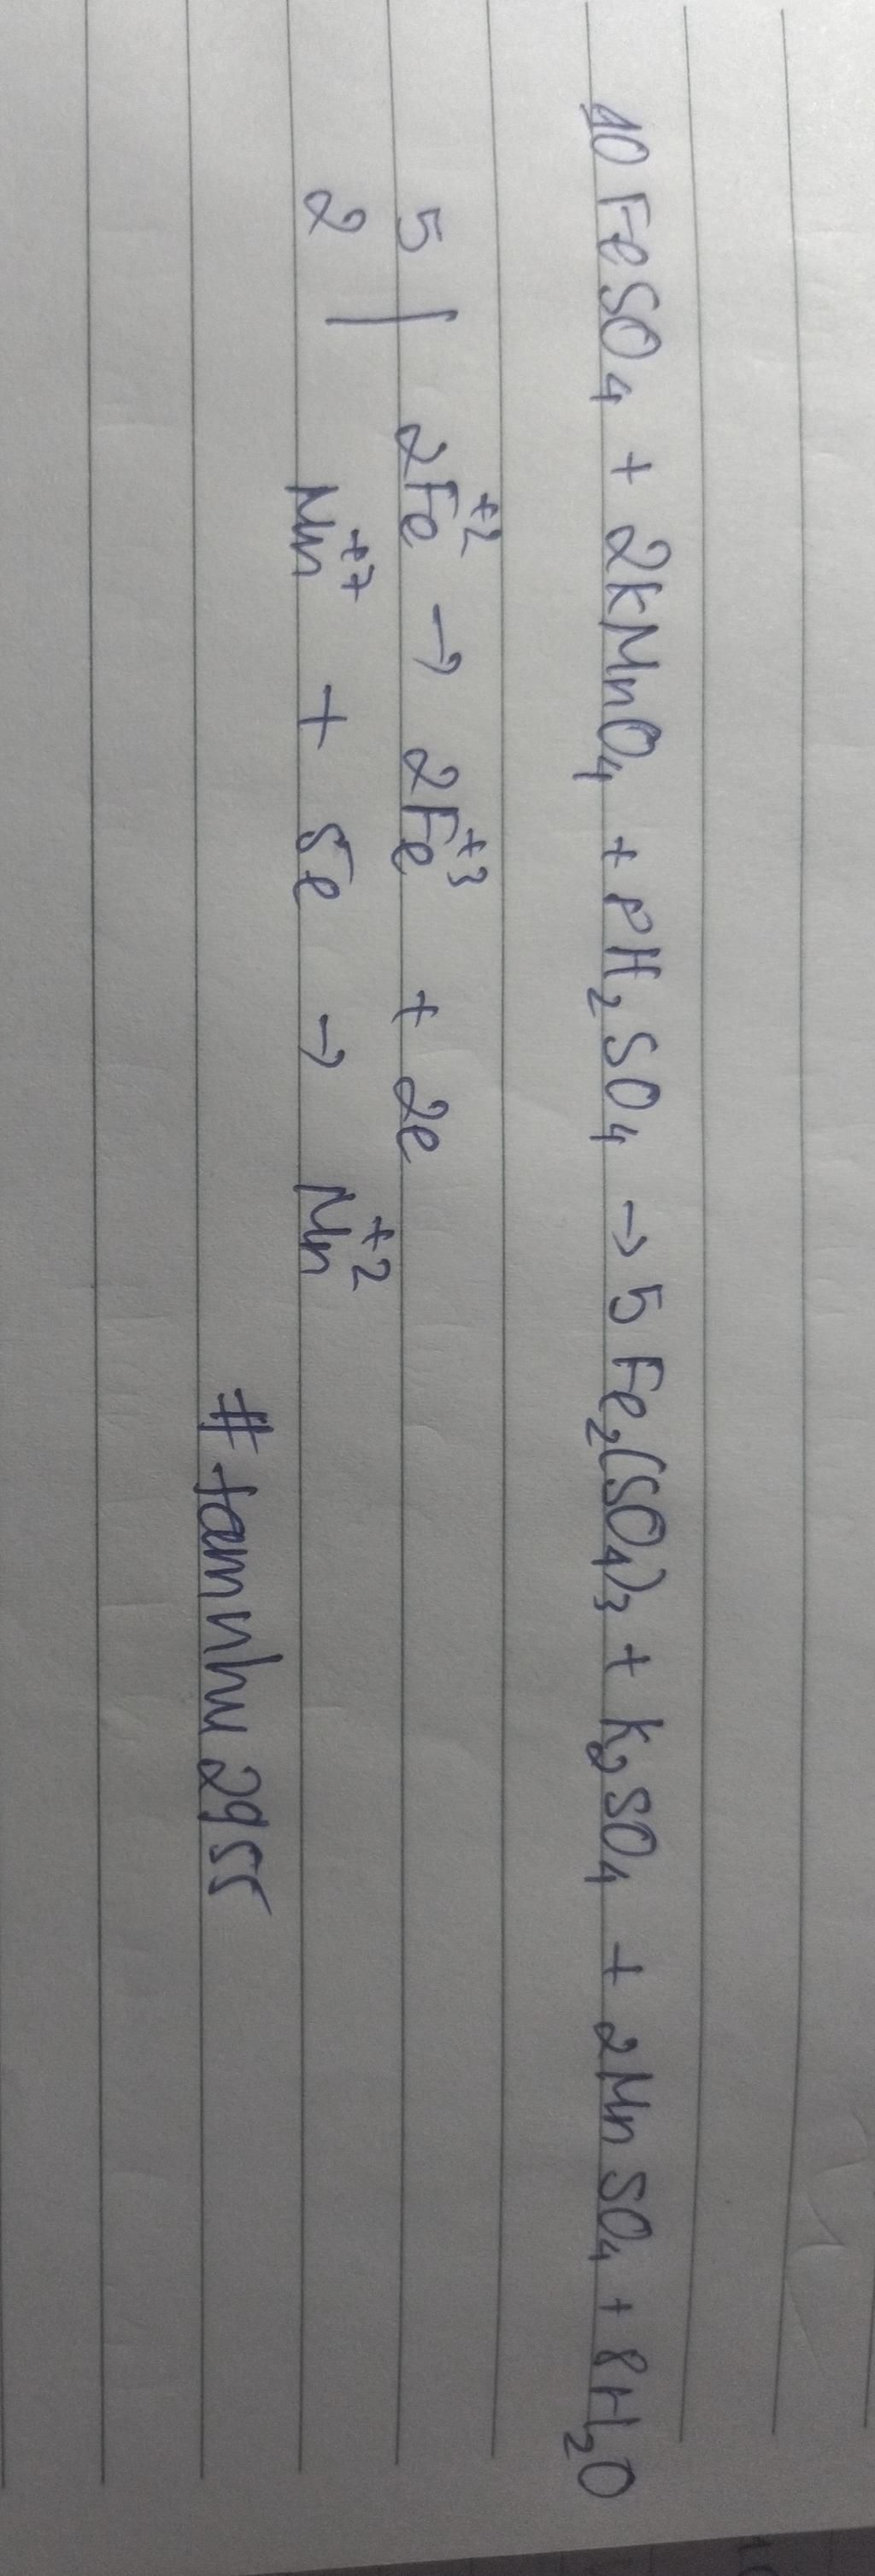 10 FeSO₄ + 2KMnO₄ + 8H₂SO₄ → 5 Fe₂(SO₄)₃ + K₂SO₄ + 2MnSO₄ + 8H₂O
5 | 2Fe⁺² → 2Fe⁺³ + 2e
2 | Mn⁺⁷ + 5e → Mn⁺²
#tamnhu2955